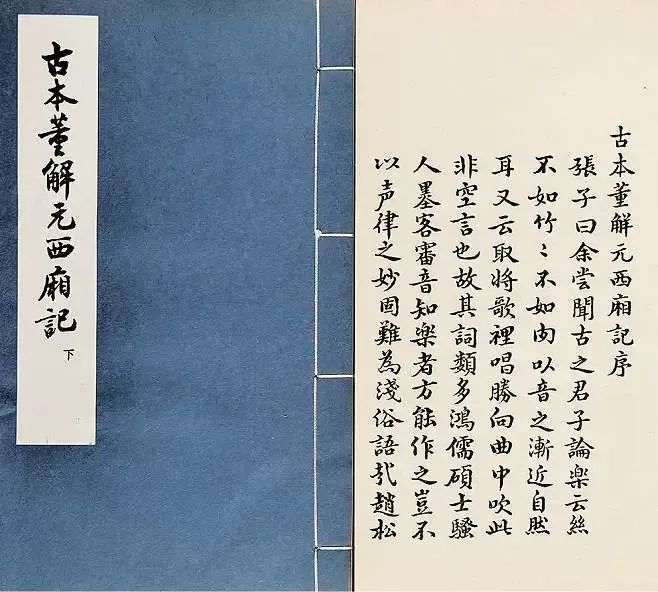 古本董解元西廂記
下
古本董解元西廂記序
張子曰余嘗聞古之君子論楽云絲
不如竹〻不如肉以音之漸近自然
耳又云取將歌裡唱勝向曲中吹此
非空言也故其詞類多鴻儒碩士騷
人墨客審音知楽者方能作之豈不
以声律之妙固難為淺俗語哉趙松